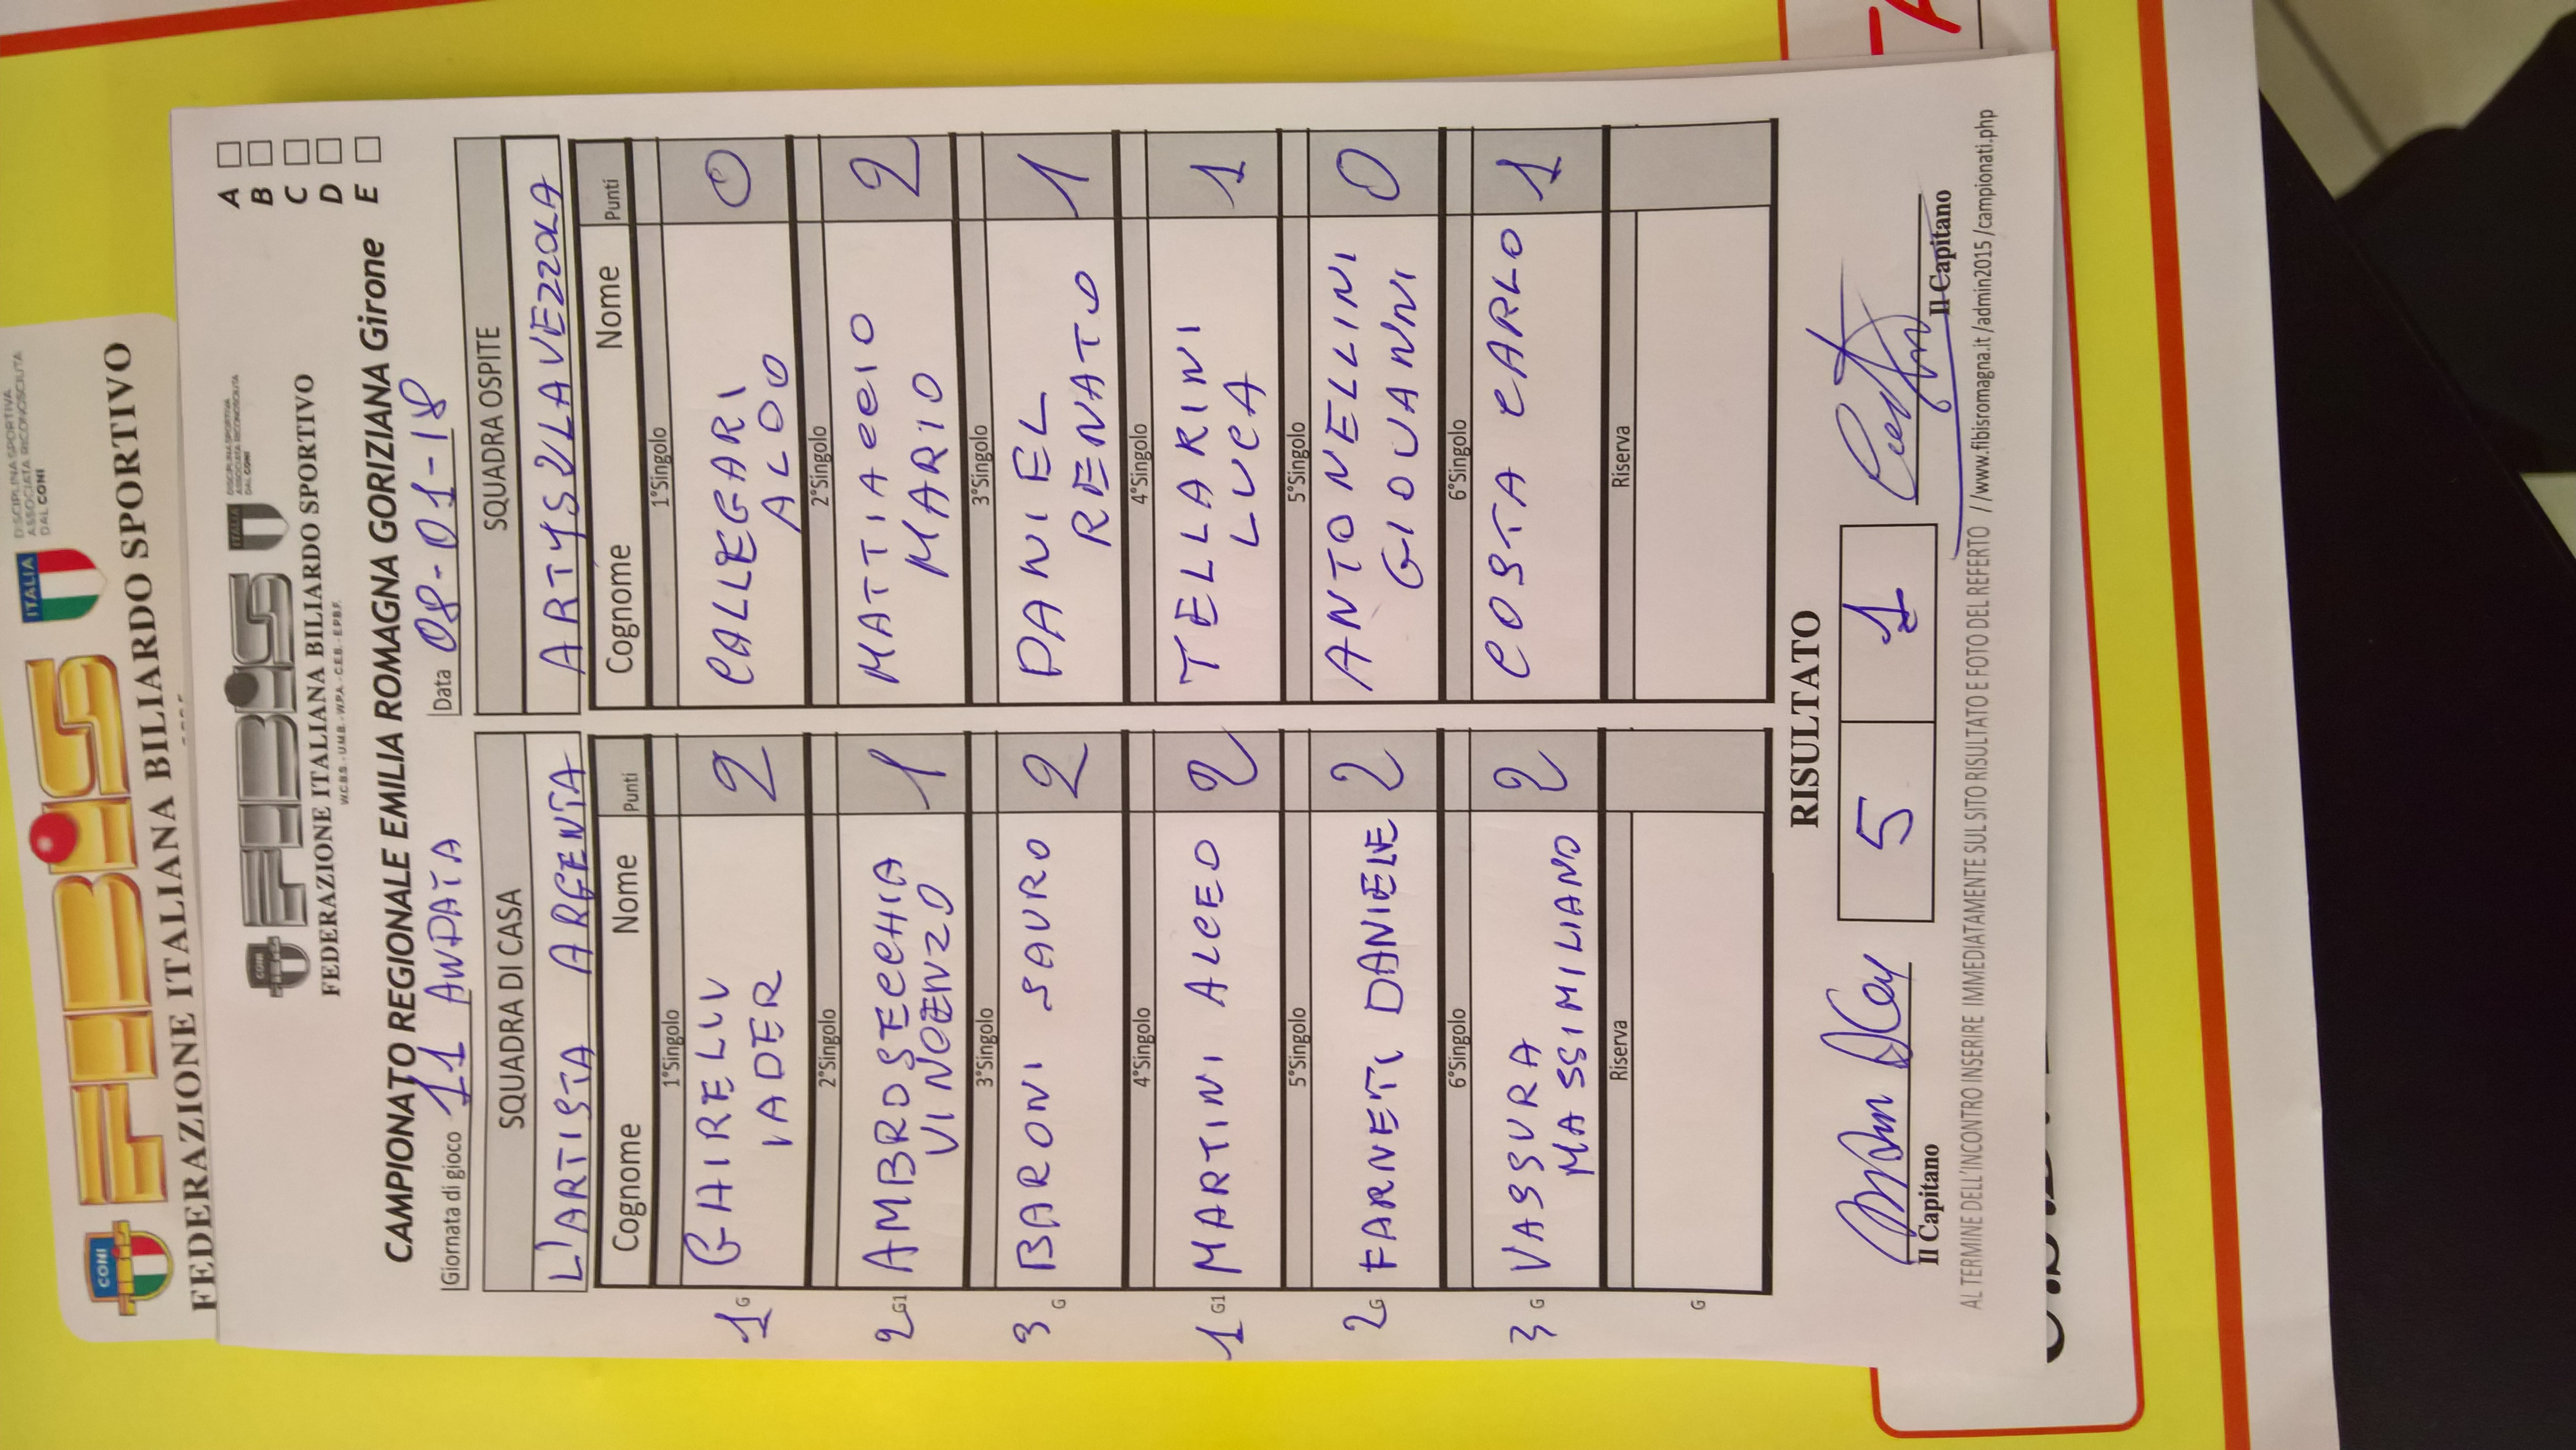 DISCIPLINA SPORTIVA
ASSOCIATA RICONOSCIUTA
DAL CONI
ITALIA
CONI
FIBiS
FEDERAZIONE ITALIANA BILIARDO SPORTIVO
DISCIPLINA SPORTIVA
ASSOCIATA RICONOSCIUTA
DAL CONI
ITALIA
CONI
FIBiS
FEDERAZIONE ITALIANA BILIARDO SPORTIVO
W.C.B.S - U.M.B. - W.P.A. - C.E.B. - E.P.B.F.
CAMPIONATO REGIONALE EMILIA ROMAGNA GORIZIANA Girone
A
B
C
D
E
Giornata di gioco 11 ANDATA Data 08-01-18
SQUADRA DI CASA SQUADRA OSPITE
L'ARTISTA ARGENTA ARTYSVLAVEZZOLA
Cognome Nome Punti Cognome Nome Punti
1°Singolo 1°Singolo
1 G GHIRELLI 2 CALLEGARI 0
IADER ALDO
2°Singolo 2°Singolo
2 G1 AMBROSECCHIA 1 MATTIACCIO 2
VINCENZO MARIO
3°Singolo 3°Singolo
3 G BARONI SAURO 2 DANIEL 1
RENATO
4°Singolo 4°Singolo
1 G1 MARTINI ALCEO 2 TELLARINI 1
LUCA
5°Singolo 5°Singolo
2 G FARNETI DANIELE 2 ANTONELLINI 0
GIOVANNI
6°Singolo 6°Singolo
3 G VASSURA 2 COSTA CARLO 1
MASSIMILIANO
Riserva Riserva
G
RISULTATO
5 1
Il Capitano Il Capitano
AL TERMINE DELL'INCONTRO INSERIRE IMMEDIATAMENTE SUL SITO RISULTATO E FOTO DEL REFERTO //www.fibisromagna.it /admin2015 /campionati.php